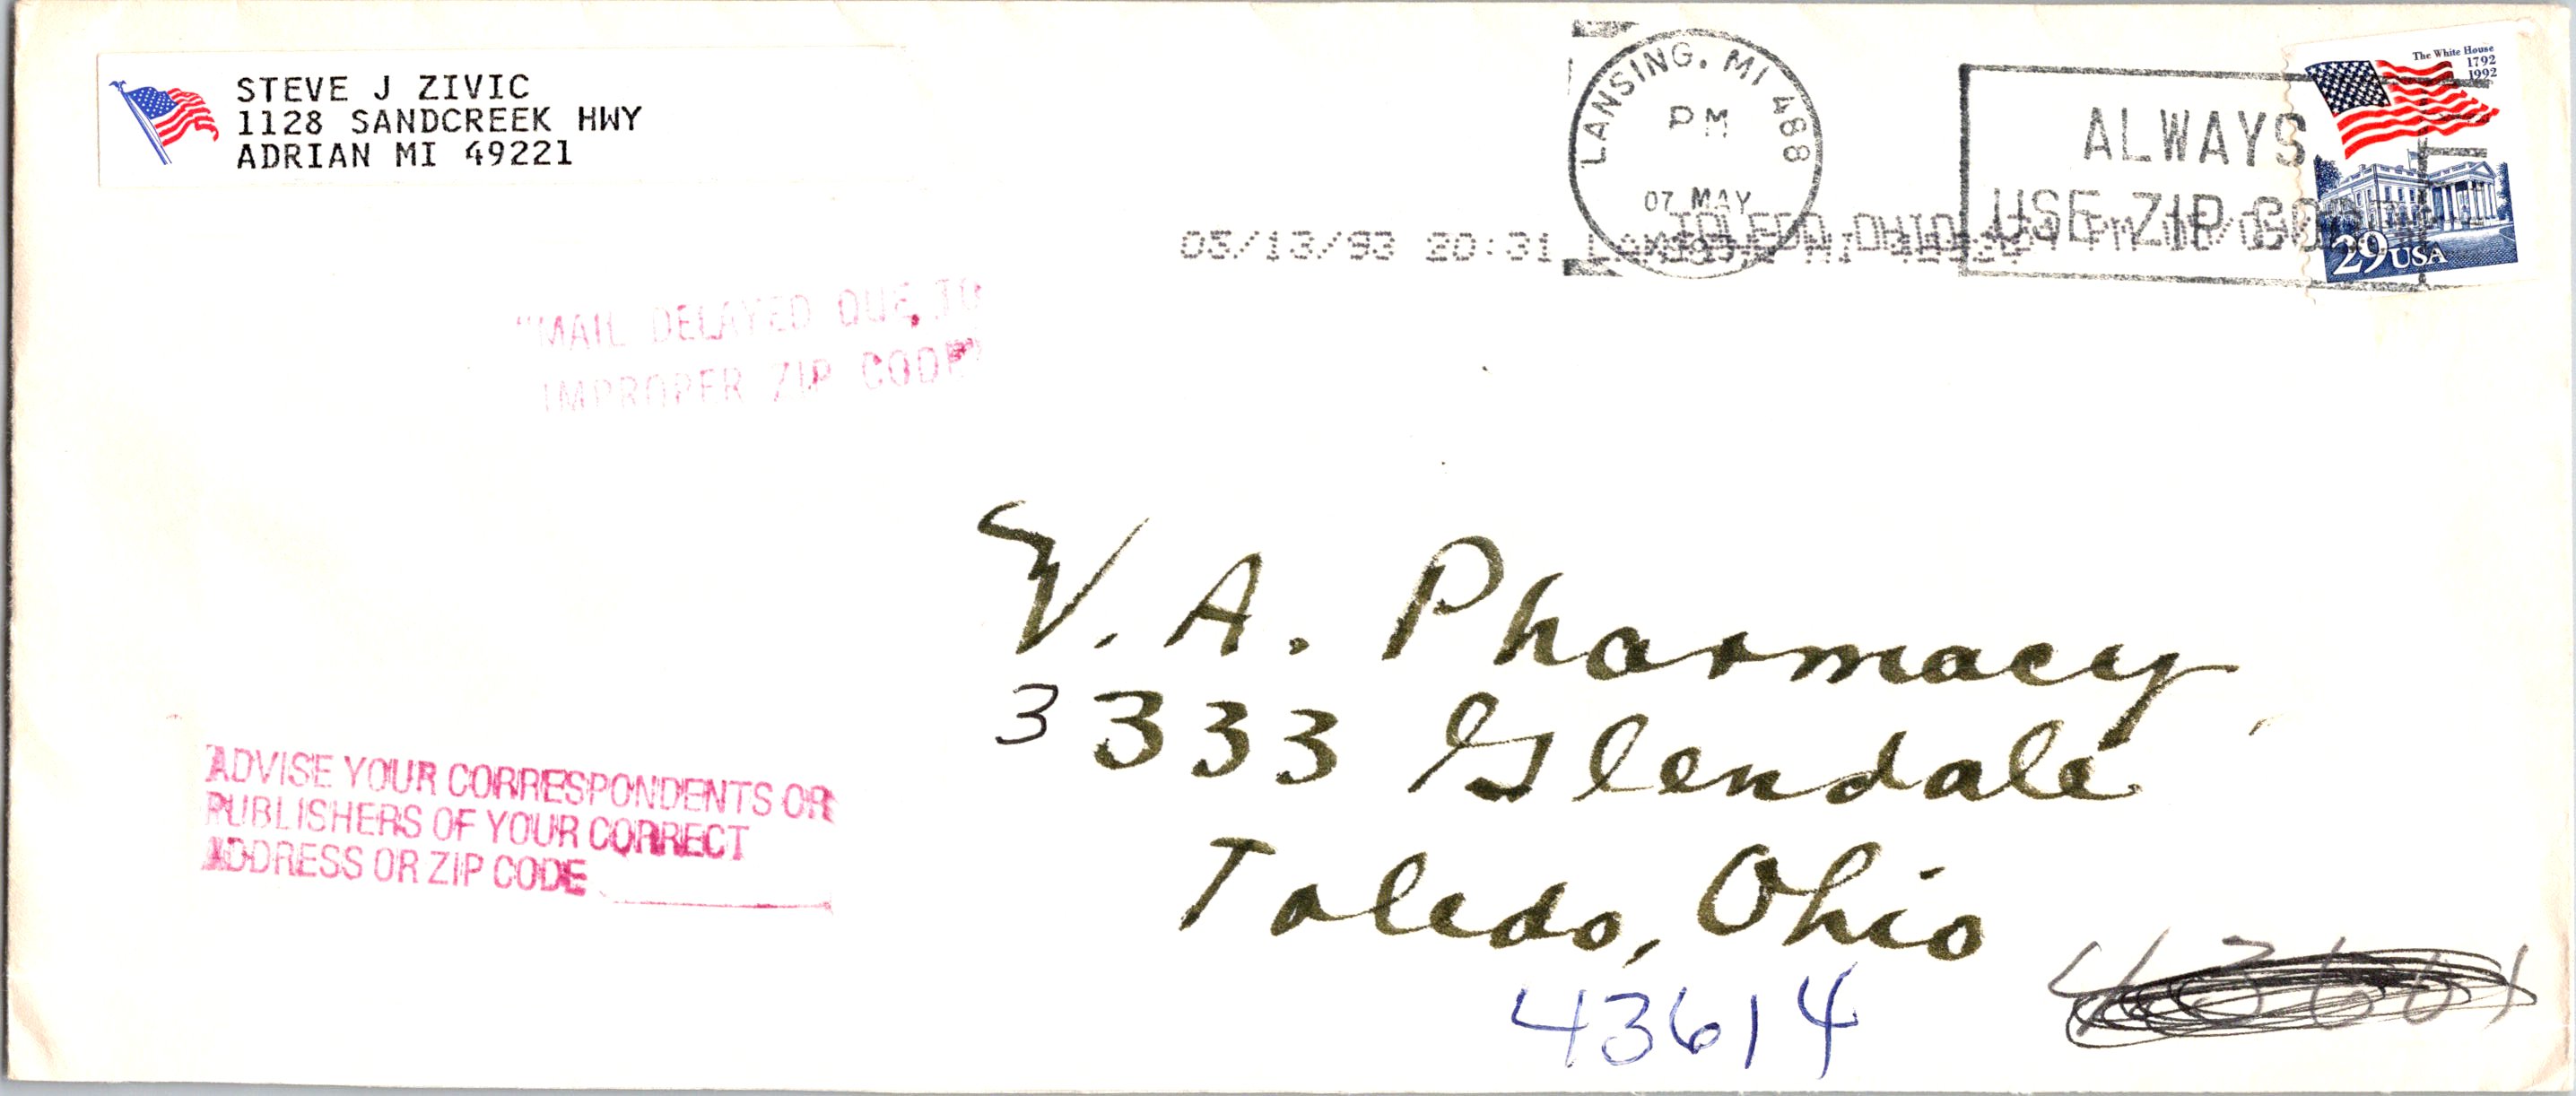 STEVE J ZIVIC
1128 SANDCREEK HWY
ADRIAN MI 49221
LANSING, MI 488
PM
07 MAY
ALWAYS
USE ZIP CODE
The White House
1792
1992
29 USA
05/13/93 20:31 LANSING MI
TOLEDO OHIO
"MAIL DELAYED DUE TO
IMPROPER ZIP CODE"
V. A. Pharmacy
3 333 Glendale
Toledo, Ohio
43601
43614
ADVISE YOUR CORRESPONDENTS OR
PUBLISHERS OF YOUR CORRECT
ADDRESS OR ZIP CODE